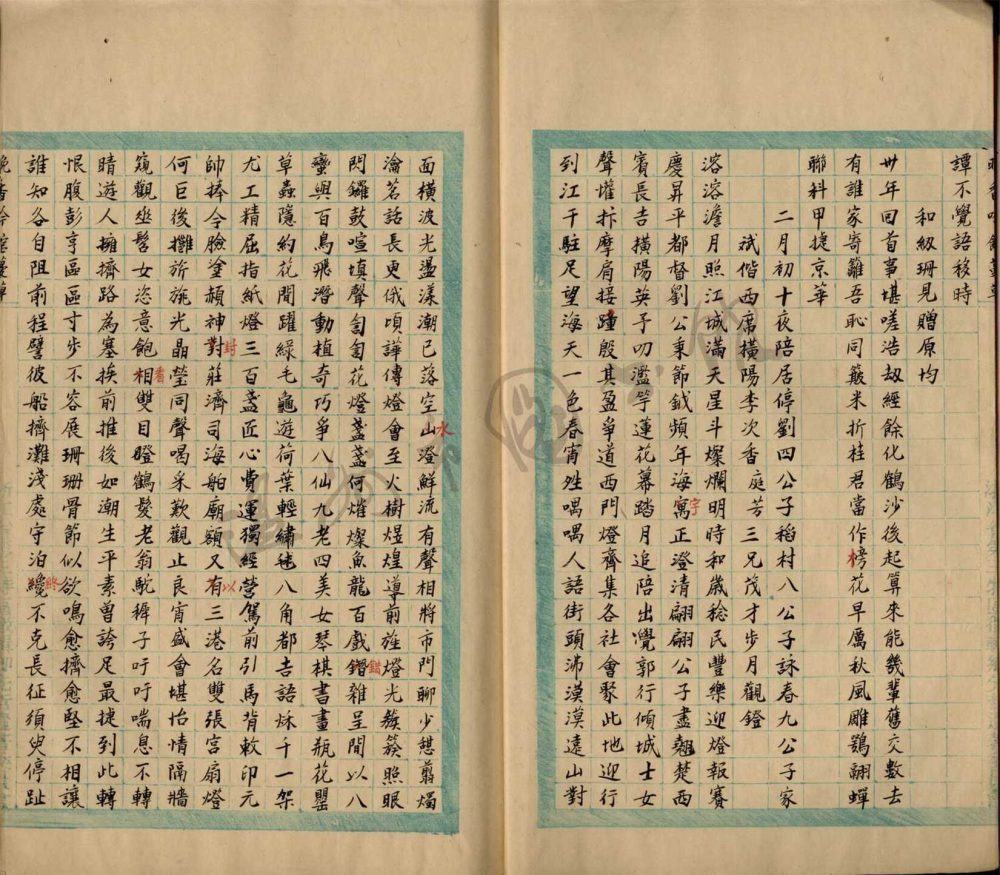 譚不覺語移時
和級珊見贈原均
卅年回首事堪嗟浩刼經餘化鶴沙後起算來能幾輩舊交數去
有誰家寄籬吾恥同簸米折桂君當作榜花早厲秋風雕鶚翮蟬
聯科甲捷京華
二月初十夜陪居停劉四公子稻村八公子詠春九公子家
斌偕西席橫陽李次香庭芳三兄茂才步月觀鐙
溶溶澹月照江城滿天星斗燦爛明時和歲稔民豐樂迎燈報賽
慶昇平都督劉公秉節鉞頻年海寓宇正澄清翩翩公子盡翹楚西
賓長吉橫陽英予叨濫竽蓮花幕踏月追陪出嚳郭行傾城士女
聲懽抃摩肩接踵殷其盈爭道西門燈齊集各社會聚此地迎行
到江干駐足望海天一色春宵姓喁喁人語街頭沸漠漠遠山對
面橫波光盪漾潮已落空山水燈鮮流有聲相將市門聊少憩翦燭
瀹茗話長更俄頃譁傳燈會至火樹煌煌導前旌燈光簇簇照眼
閃鑼鼓喧填聲訇訇花燈盞盞何燿燦魚龍百戲錯雜呈間以八
蠻與百鳥飛潛動植奇巧爭八仙九老四美女琴棋書畫瓶花罌
草蟲隱約花間躍綠毛龜遊荷葉輕繡毬八角都吉語秌千一架
尤工精屈指紙燈三百盞匠心費運獨經營駕前引馬背敕印元
帥捧令臉塗赬神對封莊濟司海舶廟額又有以三港名雙張宮扇燈
何巨後攤旂旎光晶瑩同聲喝采歎觀止良宵盛會堪怡情隔牆
窺觀坐髻女恣意飽相看雙目瞪鶴髮老翁駝穉子吁吁喘息不轉
睛遊人擁擠路為塞挨前推後如潮生平素曾誇足最捷到此轉
恨腹彭亨區區寸步不容展珊珊骨節似欲鳴愈擠愈堅不相讓
誰知各自阻前程譬彼船擠灘淺處守泊纔終不克長征須臾停趾